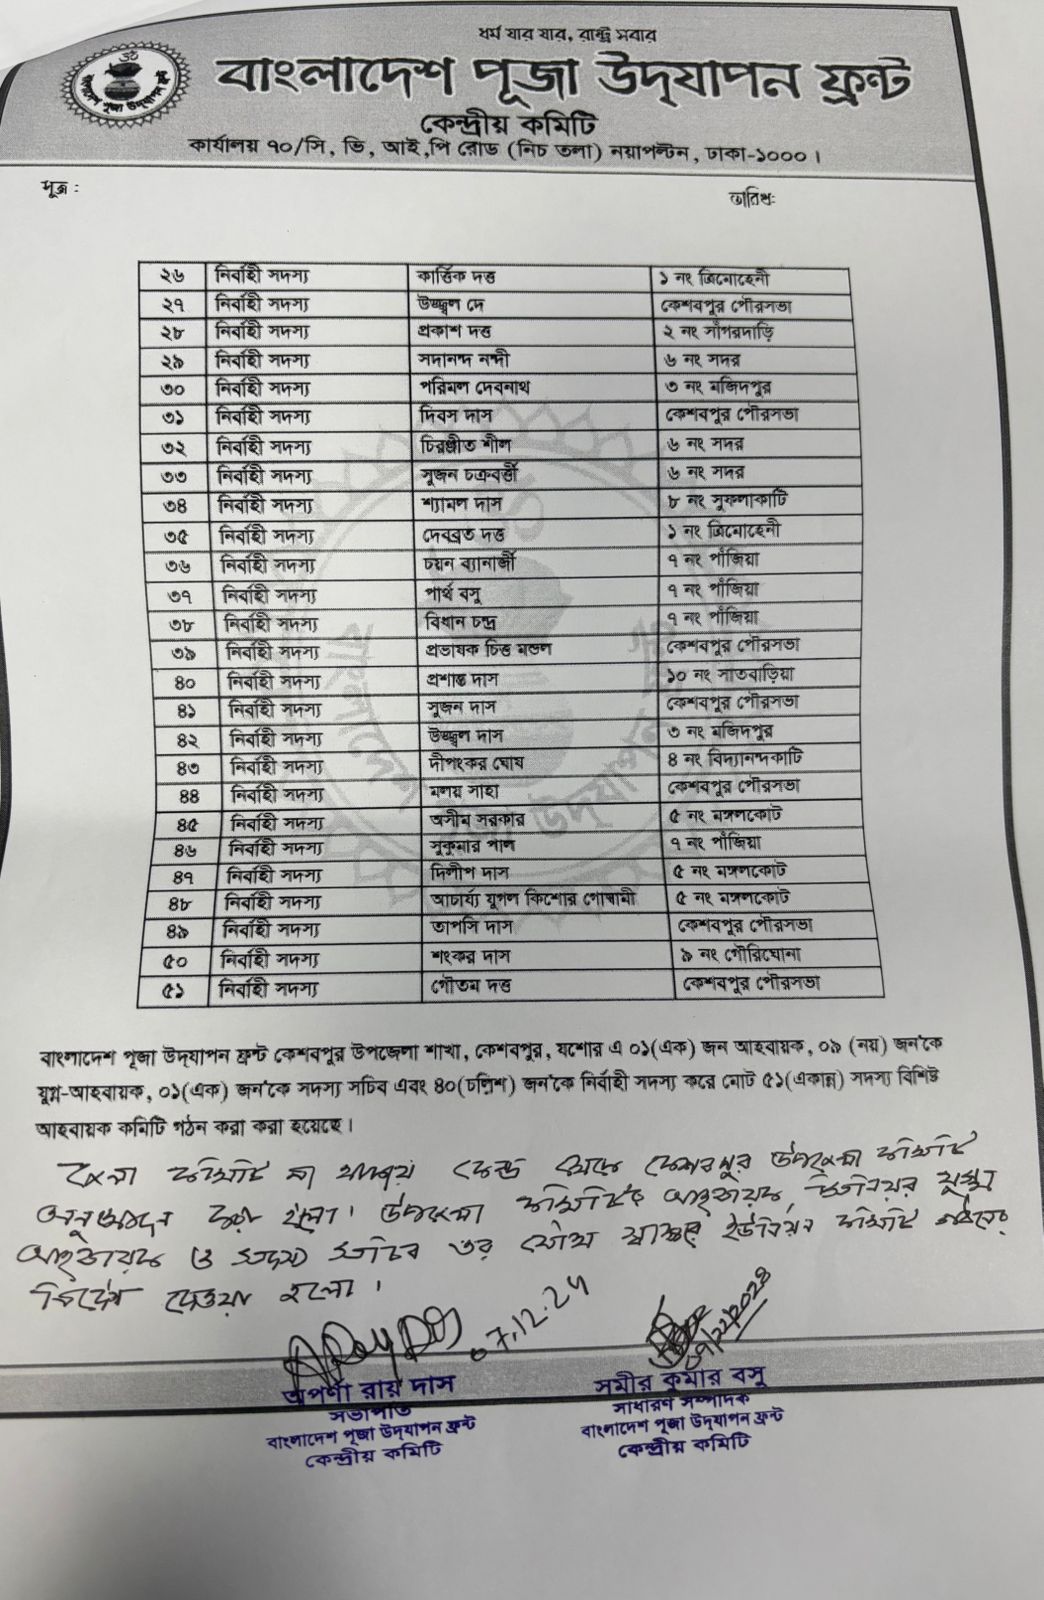 ধর্ম যার যার, রাষ্ট্র সবার
বাংলাদেশ পূজা উদ্‌যাপন ফ্রন্ট
কেন্দ্রীয় কমিটি
কার্যালয় ৭০/সি, ভি, আই,পি রোড (নিচ তলা) নয়াপল্টন, ঢাকা-১০০০।
সূত্র :
তারিখঃ
২৬ নির্বাহী সদস্য কার্ত্তিক দত্ত ১ নং ত্রিমোহেনী
২৭ নির্বাহী সদস্য উজ্জ্বল দে কেশবপুর পৌরসভা
২৮ নির্বাহী সদস্য প্রকাশ দত্ত ২ নং সাঁগরদাড়ি
২৯ নির্বাহী সদস্য সদানন্দ নন্দী ৬ নং সদর
৩০ নির্বাহী সদস্য পরিমল দেবনাথ ৩ নং মজিদপুর
৩১ নির্বাহী সদস্য দিবস দাস কেশবপুর পৌরসভা
৩২ নির্বাহী সদস্য চিরঞ্জীত শীল ৬ নং সদর
৩৩ নির্বাহী সদস্য সুজন চক্রবর্ত্তী ৬ নং সদর
৩৪ নির্বাহী সদস্য শ্যামল দাস ৮ নং সুফলাকাটি
৩৫ নির্বাহী সদস্য দেবব্রত দত্ত ১ নং ত্রিমোহেনী
৩৬ নির্বাহী সদস্য চয়ন ব্যানার্জী ৭ নং পাঁজিয়া
৩৭ নির্বাহী সদস্য পার্থ বসু ৭ নং পাঁজিয়া
৩৮ নির্বাহী সদস্য বিধান চন্দ্র ৭ নং পাঁজিয়া
৩৯ নির্বাহী সদস্য প্রভাষক চিত্ত মন্ডল কেশবপুর পৌরসভা
৪০ নির্বাহী সদস্য প্রশান্ত দাস ১০ নং সাতবাড়িয়া
৪১ নির্বাহী সদস্য সুজন দাস কেশবপুর পৌরসভা
৪২ নির্বাহী সদস্য উজ্জ্বল দাস ৩ নং মজিদপুর
৪৩ নির্বাহী সদস্য দীপংকর ঘোষ ৪ নং বিদ্যানন্দকাটি
৪৪ নির্বাহী সদস্য মলয় সাহা কেশবপুর পৌরসভা
৪৫ নির্বাহী সদস্য অসীম সরকার ৫ নং মঙ্গলকোট
৪৬ নির্বাহী সদস্য সুকুমার পাল ৭ নং পাঁজিয়া
৪৭ নির্বাহী সদস্য দিলীপ দাস ৫ নং মঙ্গলকোট
৪৮ নির্বাহী সদস্য আচার্য্য যুগল কিশোর গোস্বামী ৫ নং মঙ্গলকোট
৪৯ নির্বাহী সদস্য তাপসি দাস কেশবপুর পৌরসভা
৫০ নির্বাহী সদস্য শংকর দাস ৯ নং গৌরিঘোনা
৫১ নির্বাহী সদস্য গৌতম দত্ত কেশবপুর পৌরসভা
বাংলাদেশ পূজা উদ্‌যাপন ফ্রন্ট কেশবপুর উপজেলা শাখা, কেশবপুর, যশোর এ ০১(এক) জন আহবায়ক, ০৯ (নয়) জন'কে
যুগ্ন-আহবায়ক, ০১(এক) জন'কে সদস্য সচিব এবং ৪০(চল্লিশ) জন'কে নির্বাহী সদস্য করে মোট ৫১(একান্ন) সদস্য বিশিষ্ট
আহবায়ক কমিটি গঠন করা করা হয়েছে।
জেলা কমিটি না থাকায় কেন্দ্র থেকে কেশবপুর উপজেলা কমিটি
অনুমোদন করা হলো। উপজেলা কমিটির আহবায়ক, সিনিয়র যুগ্ম
আহবায়ক ও সদস্য সচিব এর যৌথ স্বাক্ষরে ইউনিয়ন কমিটি গঠনের
নির্দেশ দেওয়া হলো।
07.12.24
০৭/১২/২০২৪
অপর্ণা রায় দাস
সভাপতি
বাংলাদেশ পূজা উদ্‌যাপন ফ্রন্ট
কেন্দ্রীয় কমিটি
সমীর কুমার বসু
সাধারণ সম্পাদক
বাংলাদেশ পূজা উদ্‌যাপন ফ্রন্ট
কেন্দ্রীয় কমিটি